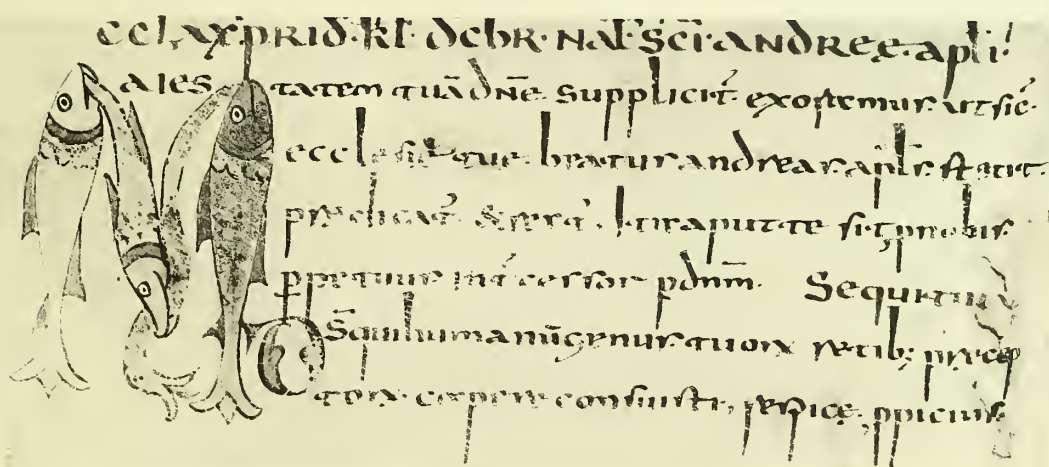 cclxx prid. kl. dcbr. nat. sci. andree. apli.
aiestatem tuā dn̄e. supplicit̄. exoremur. ut sic̄.
ecclesie que. beatur andrear. apl̄r. extitit.
predicat̄. & rect̄. ita aput te sit pro nobis
ppetuur int̄cessor p dnm̄. Sequitur
S̄ qui humanū genus tuorx retib; precep
torx. capere consuisti, respice, ppicius